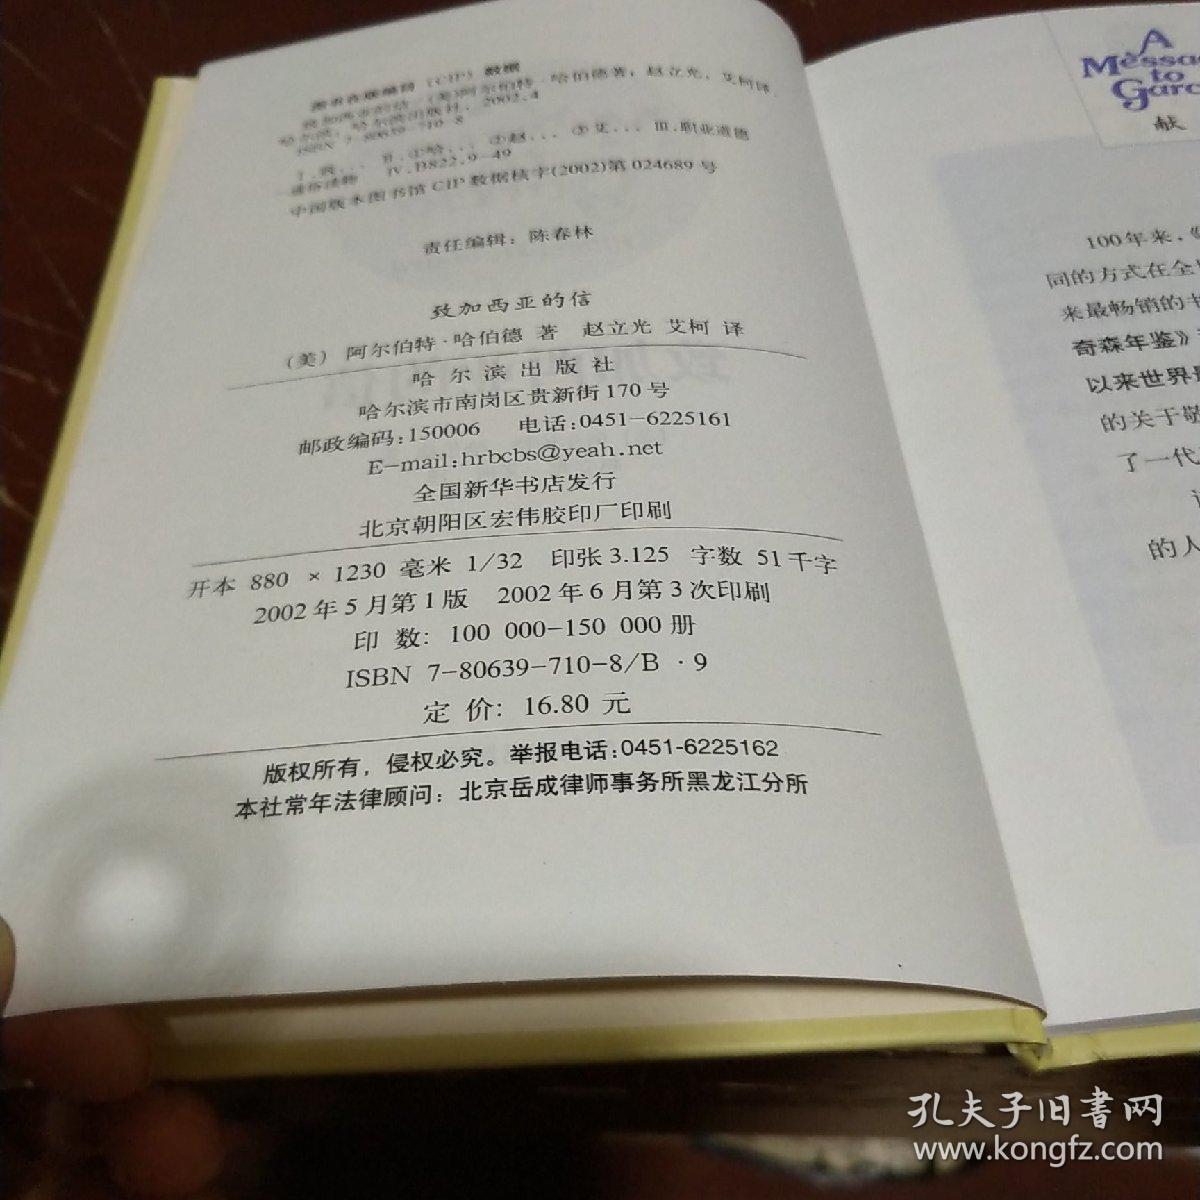 图书在版编目（CIP）数据
致加西亚的信／（美）阿尔伯特·哈伯德著；赵立光，艾柯译.
哈尔滨：哈尔滨出版社，2002.4
ISBN 7-80639-710-8
Ⅰ.致... Ⅱ.①哈... ②赵... ③艾... Ⅲ.职业道德
-通俗读物 Ⅳ.B822.9-49
中国版本图书馆CIP数据核字(2002)第024689号
责任编辑：陈春林
致加西亚的信
（美）阿尔伯特·哈伯德 著 赵立光 艾柯 译
哈尔滨出版社
哈尔滨市南岗区贵新街170号
邮政编码：150006 电话：0451-6225161
E-mail:hrbcbs@yeah.net
全国新华书店发行
北京朝阳区宏伟胶印厂印刷
开本 880 × 1230 毫米 1/32 印张 3.125 字数 51千字
2002年5月第1版 2002年6月第3次印刷
印 数：100 000-150 000册
ISBN 7-80639-710-8/B·9
定 价：16.80 元
版权所有，侵权必究。举报电话：0451-6225162
本社常年法律顾问：北京岳成律师事务所黑龙江分所
A
Messa
to
Garc
献
100年来，《
同的方式在全
来最畅销的书
奇森年鉴》
以来世界最
的关于敬
了一代
的人
孔夫子旧书网
www.kongfz.com